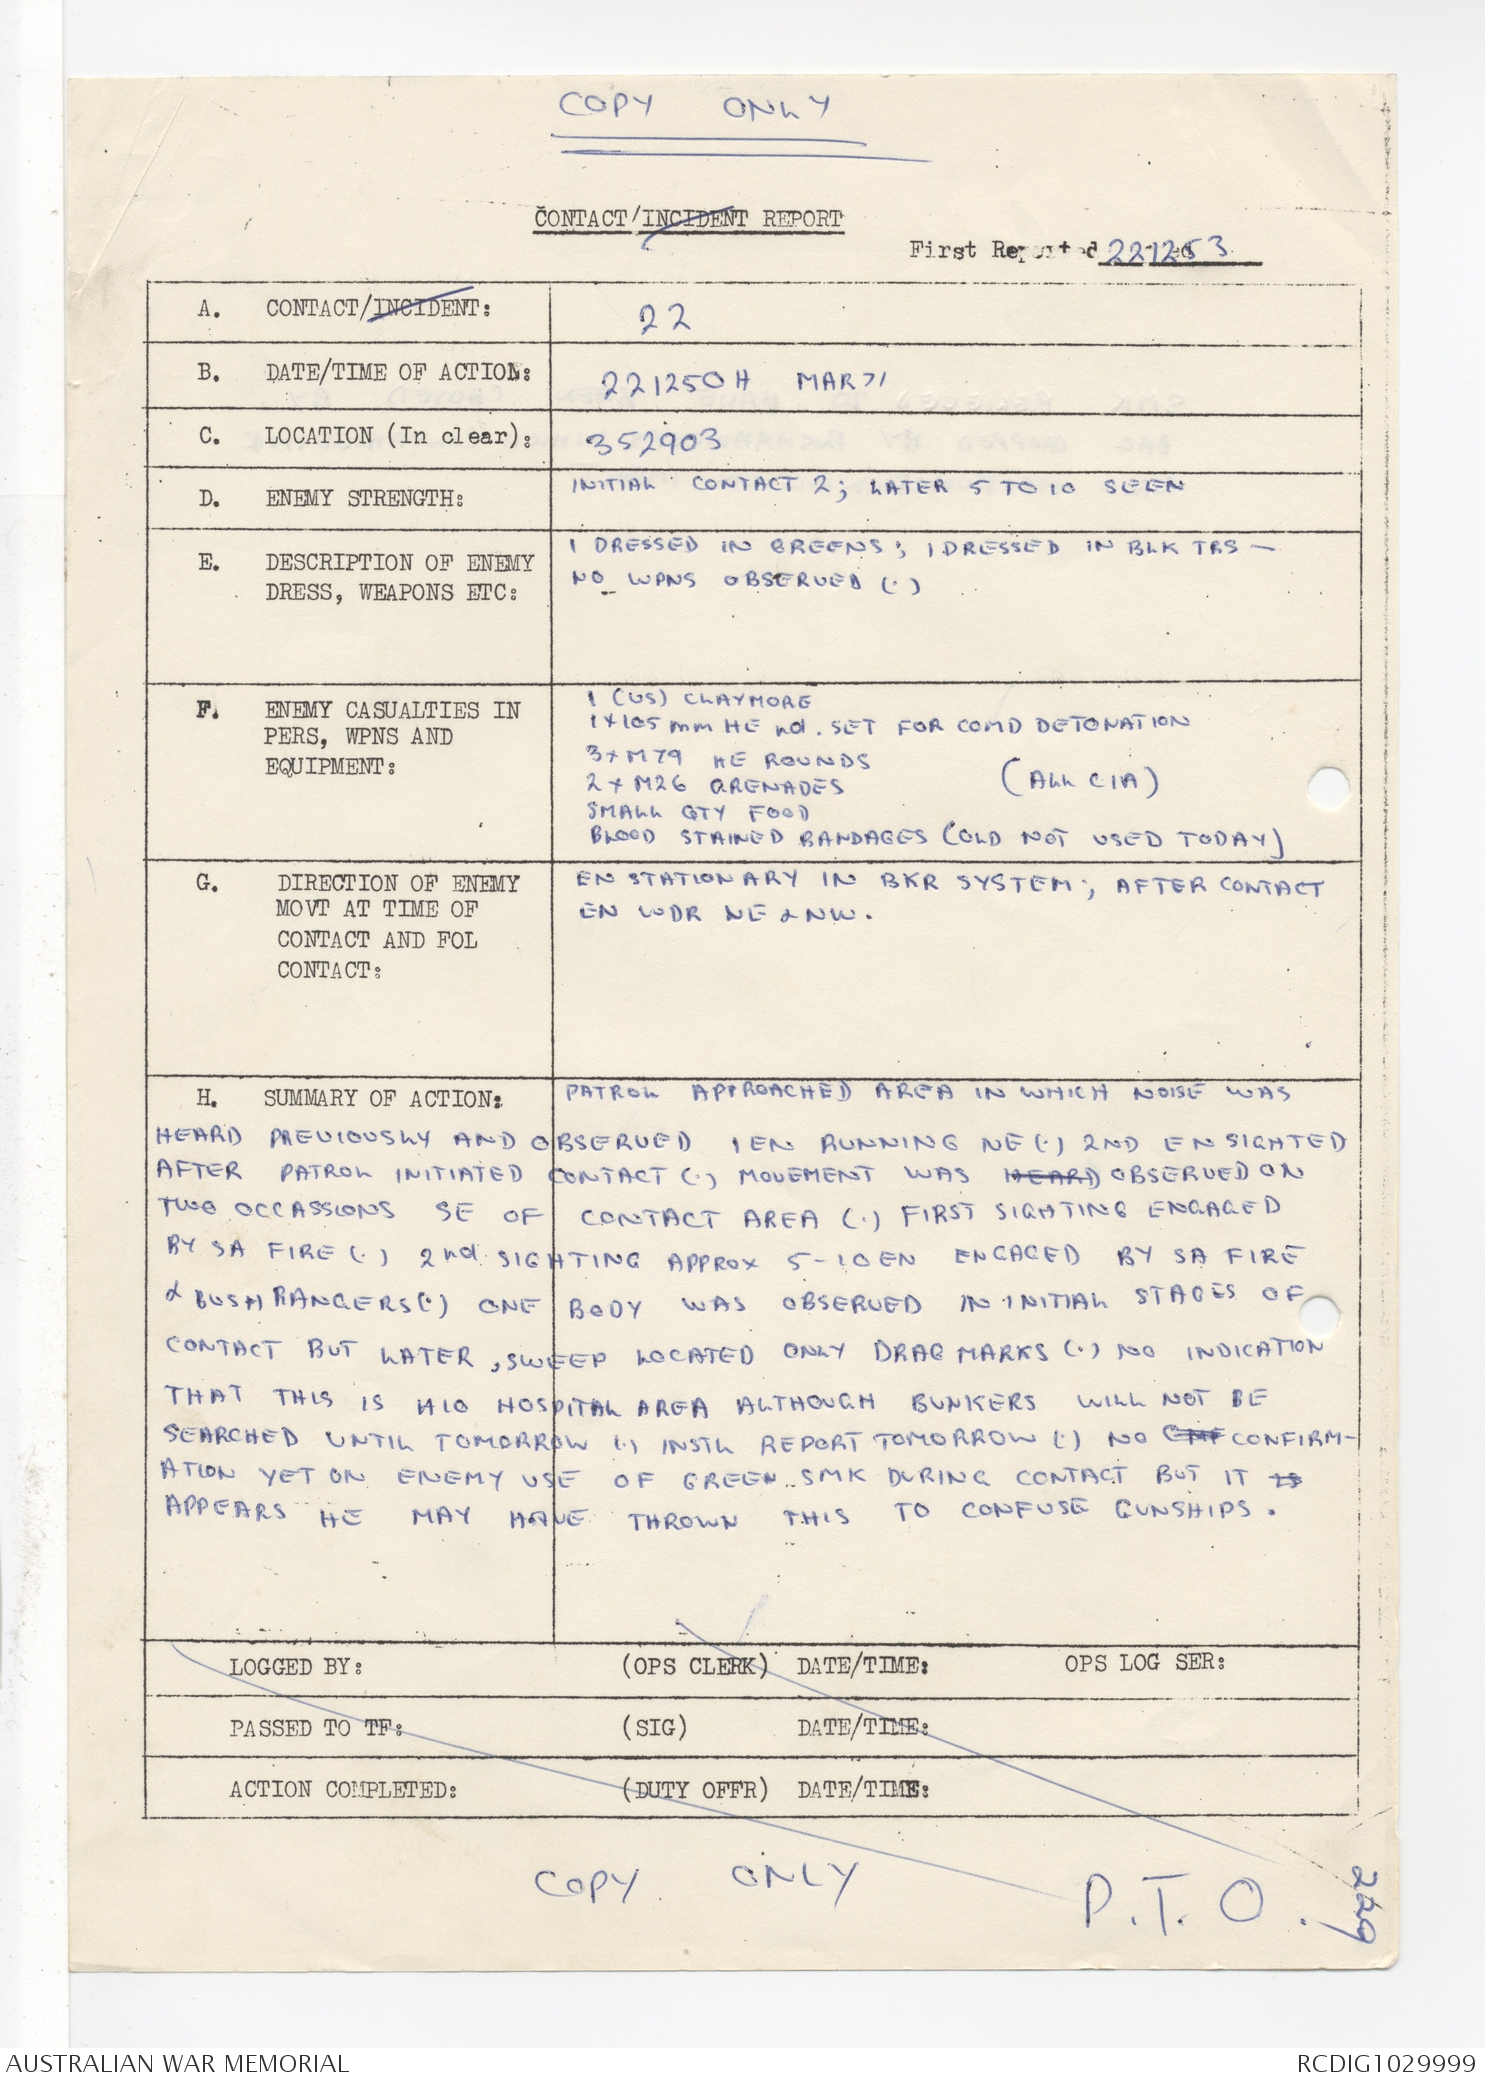 COPY ONLY
CONTACT/INCIDENT REPORT
First Reported 221253
A. CONTACT/INCIDENT: 22
B. DATE/TIME OF ACTION: 221250H MAR 71
C. LOCATION (In clear): 352903
D. ENEMY STRENGTH: INITIAL CONTACT 2; LATER 5 TO 10 SEEN
E. DESCRIPTION OF ENEMY DRESS, WEAPONS ETC: 1 DRESSED IN GREENS; 1 DRESSED IN BLK TRS —
NO WPNS OBSERVED (.)
F. ENEMY CASUALTIES IN PERS, WPNS AND EQUIPMENT: 1 (US) CLAYMORE
1 x 105 mm HE rd. SET FOR COMD DETONATION
3 x M79 HE ROUNDS
2 x M26 GRENADES (ALL CIA)
SMALL QTY FOOD
BLOOD STAINED BANDAGES (OLD NOT USED TODAY)
G. DIRECTION OF ENEMY MOVT AT TIME OF CONTACT AND FOL CONTACT: EN STATIONARY IN BKR SYSTEM; AFTER CONTACT
EN WDR NE & NW.
H. SUMMARY OF ACTION: PATROL APPROACHED AREA IN WHICH NOISE WAS
HEARD PREVIOUSLY AND OBSERVED 1 EN RUNNING NE (.) 2ND EN SIGHTED
AFTER PATROL INITIATED CONTACT (.) MOVEMENT WAS HEARD OBSERVED ON
TWO OCCASSIONS SE OF CONTACT AREA (.) FIRST SIGHTING ENGAGED
BY SA FIRE (.) 2nd. SIGHTING APPROX 5-10 EN ENGAGED BY SA FIRE
& BUSHRANGERS (.) ONE BODY WAS OBSERVED IN INITIAL STAGES OF
CONTACT BUT LATER, SWEEP LOCATED ONLY DRAG MARKS (.) NO INDICATION
THAT THIS IS K10 HOSPITAL AREA ALTHOUGH BUNKERS WILL NOT BE
SEARCHED UNTIL TOMORROW (.) INSTL REPORT TOMORROW (.) NO CONFIRM-
ATION YET ON ENEMY USE OF GREEN SMK DURING CONTACT BUT IT IS
APPEARS HE MAY HAVE THROWN THIS TO CONFUSE GUNSHIPS.
LOGGED BY: (OPS CLERK) DATE/TIME: OPS LOG SER:
PASSED TO TF: (SIG) DATE/TIME:
ACTION COMPLETED: (DUTY OFFR) DATE/TIME:
COPY ONLY
P.T.O.
229
AUSTRALIAN WAR MEMORIAL
RCDIG1029999